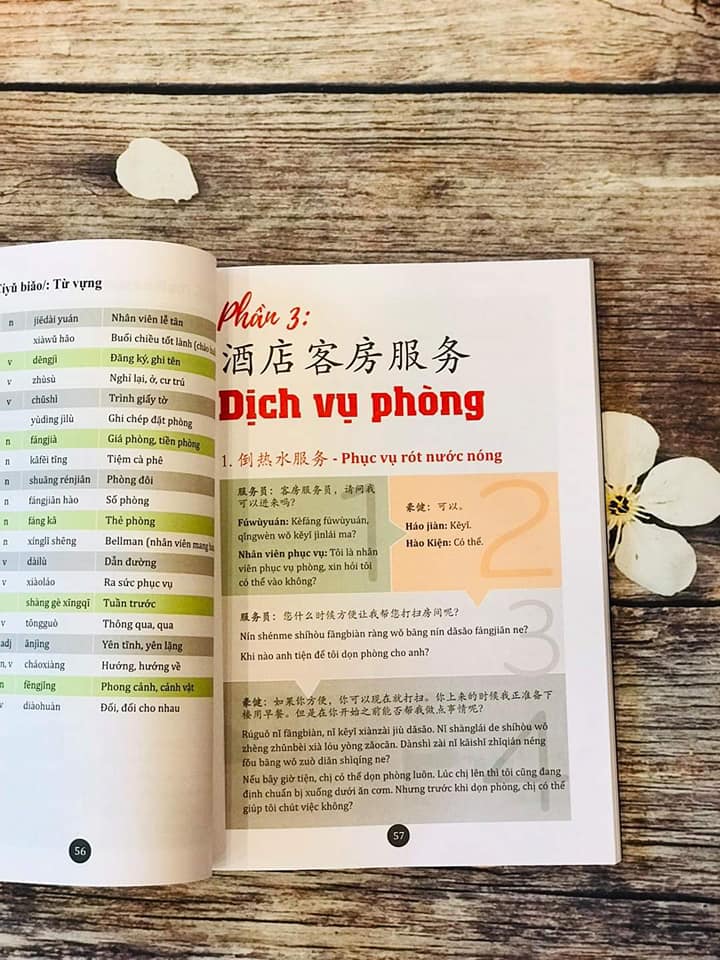 Từ vựng
n jiēdài yuán Nhân viên lễ tân
xiàwǔ hǎo Buổi chiều tốt lành
v dēngjì Đăng ký, ghi tên
v zhùsù Nghỉ lại, ở, cư trú
v chūshì Trình giấy tờ
yùdìng jìlù Ghi chép đặt phòng
n fángjià Giá phòng, tiền phòng
n kāfēi tīng Tiệm cà phê
n shuāng rénjiān Phòng đôi
n fángjiān hào Số phòng
n fáng kǎ Thẻ phòng
n xínglǐ shēng Bellman (nhân viên mang
v dàilù Dẫn đường
v xiàoláo Ra sức phục vụ
shàng gè xīngqī Tuần trước
v tōngguò Thông qua, qua
adj ānjìng Yên tĩnh, yên lặng
n, v cháoxiàng Hướng, hướng về
n fēngjǐng Phong cảnh, cảnh vật
v diàohuàn Đổi, đổi cho nhau
56
Phần 3:
酒店客房服务
Dịch vụ phòng
1. 倒热水服务 - Phục vụ rót nước nóng
1
服务员：客房服务员，请问我
可以进来吗？
Fúwùyuán: Kèfáng fúwùyuán,
qǐngwèn wǒ kěyǐ jìnlái ma?
Nhân viên phục vụ: Tôi là nhân
viên phục vụ phòng, xin hỏi tôi
có thể vào không?
2
豪健：可以。
Háo jiàn: Kěyǐ.
Hào Kiện: Có thể.
3
服务员：您什么时候方便让我帮您打扫房间呢？
Nín shénme shíhòu fāngbiàn ràng wǒ bāng nín dǎsǎo fángjiān ne?
Khi nào anh tiện để tôi dọn phòng cho anh?
4
豪健：如果你方便，你可以现在就打扫。你上来的时候我正准备下
楼用早餐。但是在你开始之前能否帮我做点事情呢？
Rúguǒ nǐ fāngbiàn, nǐ kěyǐ xiànzài jiù dǎsǎo. Nǐ shànglái de shíhòu wǒ
zhèng zhǔnbèi xià lóu yòng zǎocān. Dànshì zài nǐ kāishǐ zhīqián néng
fǒu bāng wǒ zuò diǎn shìqíng ne?
Nếu bây giờ tiện, chị có thể dọn phòng luôn. Lúc chị lên thì tôi cũng đang
định chuẩn bị xuống dưới ăn cơm. Nhưng trước khi dọn phòng, chị có thể
giúp tôi chút việc không?
57